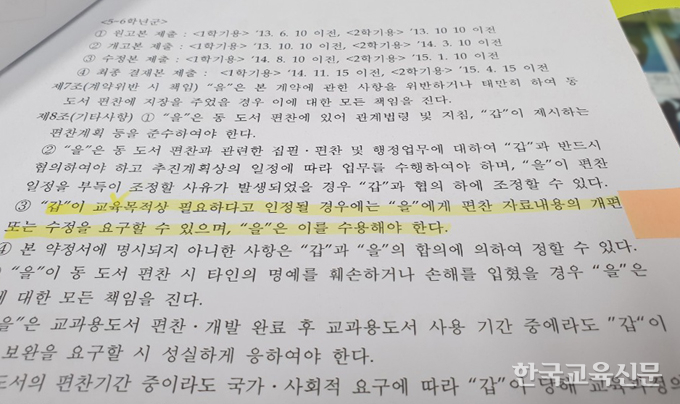 <5-6학년군>
① 원고본 제출 : <1학기용> '13. 6. 10 이전, <2학기용> '13. 10 10 이전
② 개고본 제출 : <1학기용> '13. 10. 10 이전, <2학기용> '14. 3. 10 이전
③ 수정본 제출 : <1학기용> '14. 8. 10 이전, <2학기용> '15. 1. 10 이전
④ 최종 결재본 제출 : <1학기용> '14. 11. 15 이전, <2학기용> '15. 4. 15 이전
제7조(계약위반 시 책임) “을”은 본 계약에 관한 사항을 위반하거나 태만히 하여 동
도서 편찬에 지장을 주었을 경우 이에 대한 모든 책임을 진다.
제8조(기타사항) ① “을”은 동 도서 편찬에 있어 관계법령 및 지침, “갑”이 제시하는
편찬계획 등을 준수하여야 한다.
② “을”은 동 도서 편찬과 관련한 집필·편찬 및 행정업무에 대하여 “갑”과 반드시
협의하여야 하고 추진계획상의 일정에 따라 업무를 수행하여야 하며, “을”이 편찬
일정을 부득이 조정할 사유가 발생되었을 경우 “갑”과 협의 하에 조정할 수 있다.
③ “갑”이 교육목적상 필요하다고 인정될 경우에는 “을”에게 편찬 자료내용의 개편
또는 수정을 요구할 수 있으며, “을”은 이를 수용해야 한다.
④ 본 약정서에 명시되지 아니한 사항은 “갑”과 “을”의 합의에 의하여 정할 수 있다.
“을”이 동 도서 편찬 시 타인의 명예를 훼손하거나 손해를 입혔을 경우 “을”은
에 대한 모든 책임을 진다.
을”은 교과용도서 편찬·개발 완료 후 교과용도서 사용 기간 중에라도 ”갑“이
보완을 요구할 시 성실하게 응하여야 한다.
도서의 편찬기간 중이라도 국가·사회적 요구에 따라 “갑”이 당해 교육과정의
한국교육신문